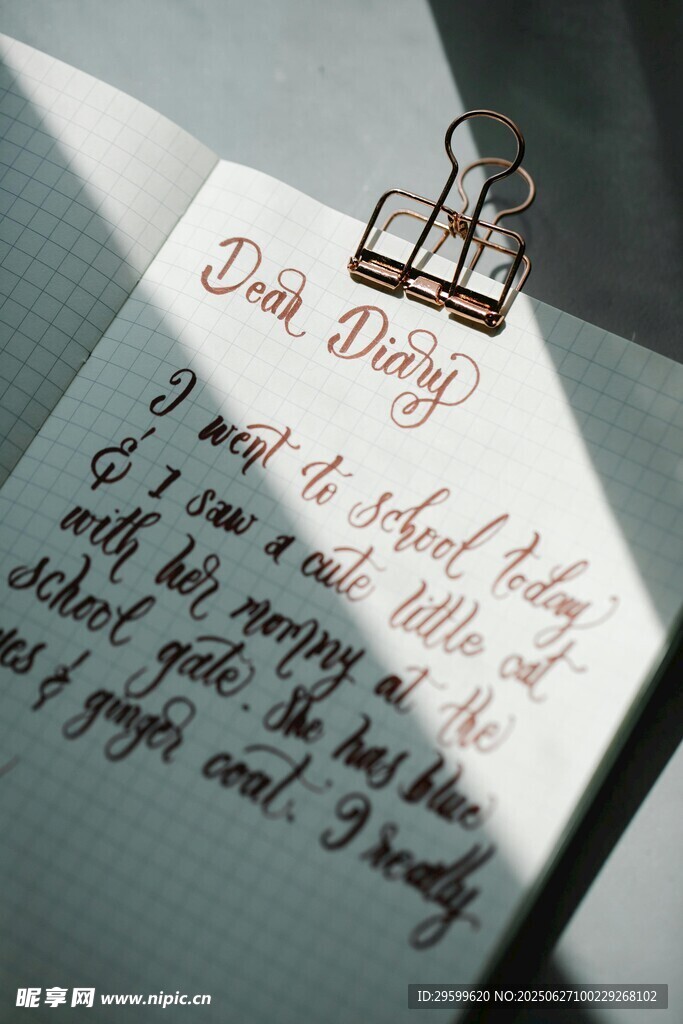 Dear Diary
I went to school today
& I saw a cute little cat
with her mommy at the
school gate. She has blue
yes & ginger coat. I really
昵享网 www.nipic.cn
ID:29599620 NO:20250627100229268102